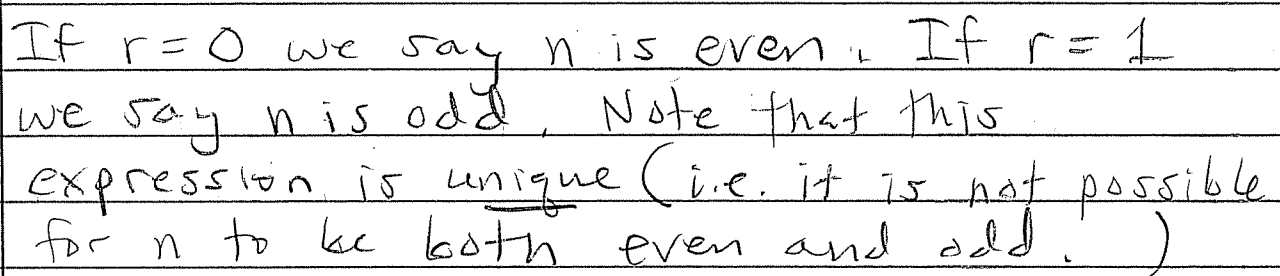 If r = 0 we say n is even. If r = 1
we say n is odd. Note that this
expression is unique (i.e. it is not possible
for n to be both even and odd.)